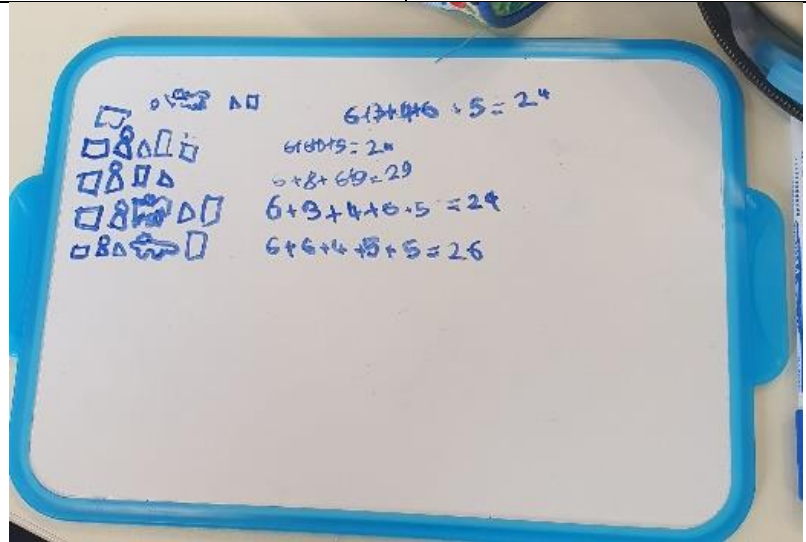 6+3+4+6+5=24
6+8+5=24
6+8+6+9=29
6+3+4+6+5=24
6+6+4+5+5=26